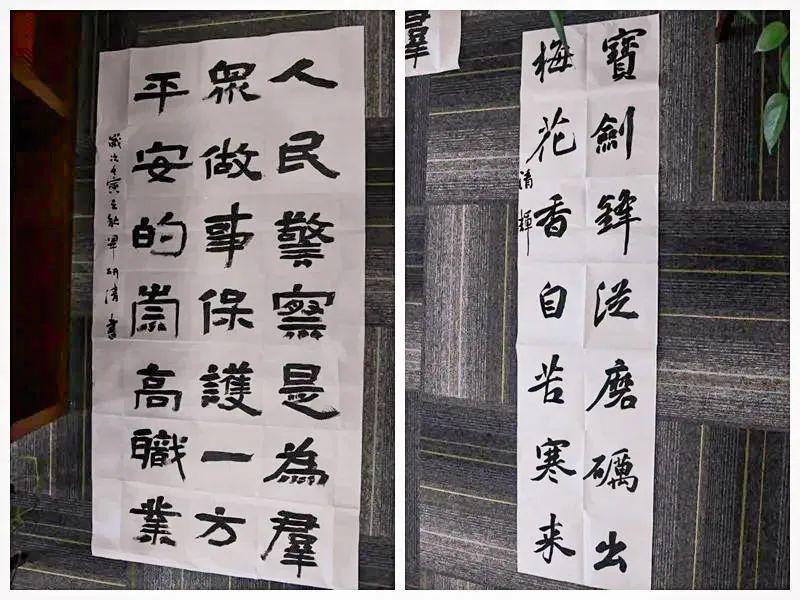 人民警察是為羣
眾做事保護一方
平安的崇高職業
歲次壬寅之秋畢研清書
羣
寶劍鋒從磨礪出
梅花香自苦寒来
清輝